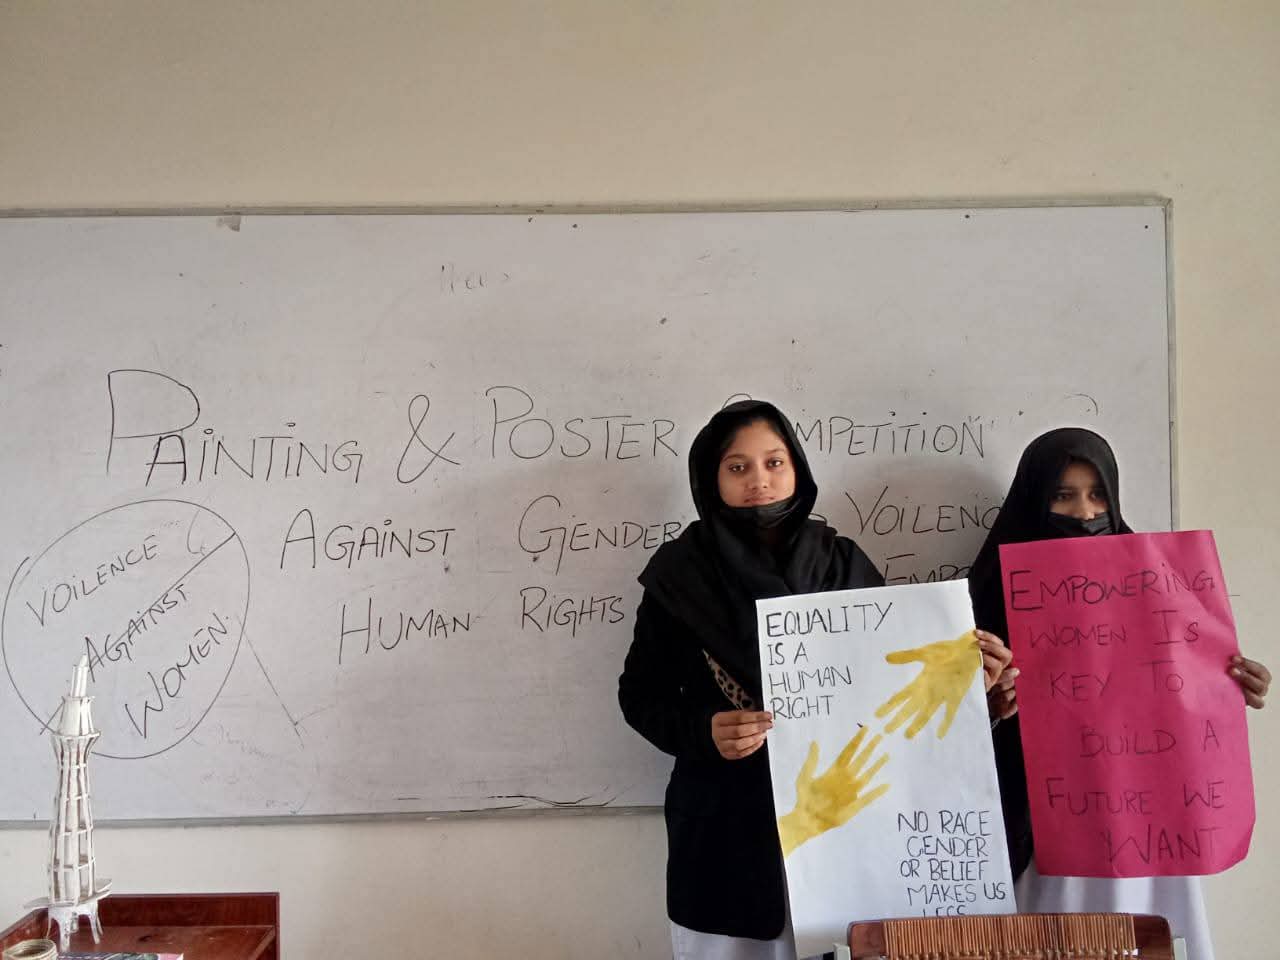 PAINTING & POSTER COMPETITION
AGAINST GENDER VOILENC
HUMAN RIGHTS EMPO
VOILENCE
AGAINST
WOMEN.
EQUALITY
IS A
HUMAN
RIGHT
NO RACE
GENDER
OR BELIEF
MAKES US
LESS
EMPOWERING
WOMEN IS
KEY TO
BUILD A
FUTURE WE
WANT